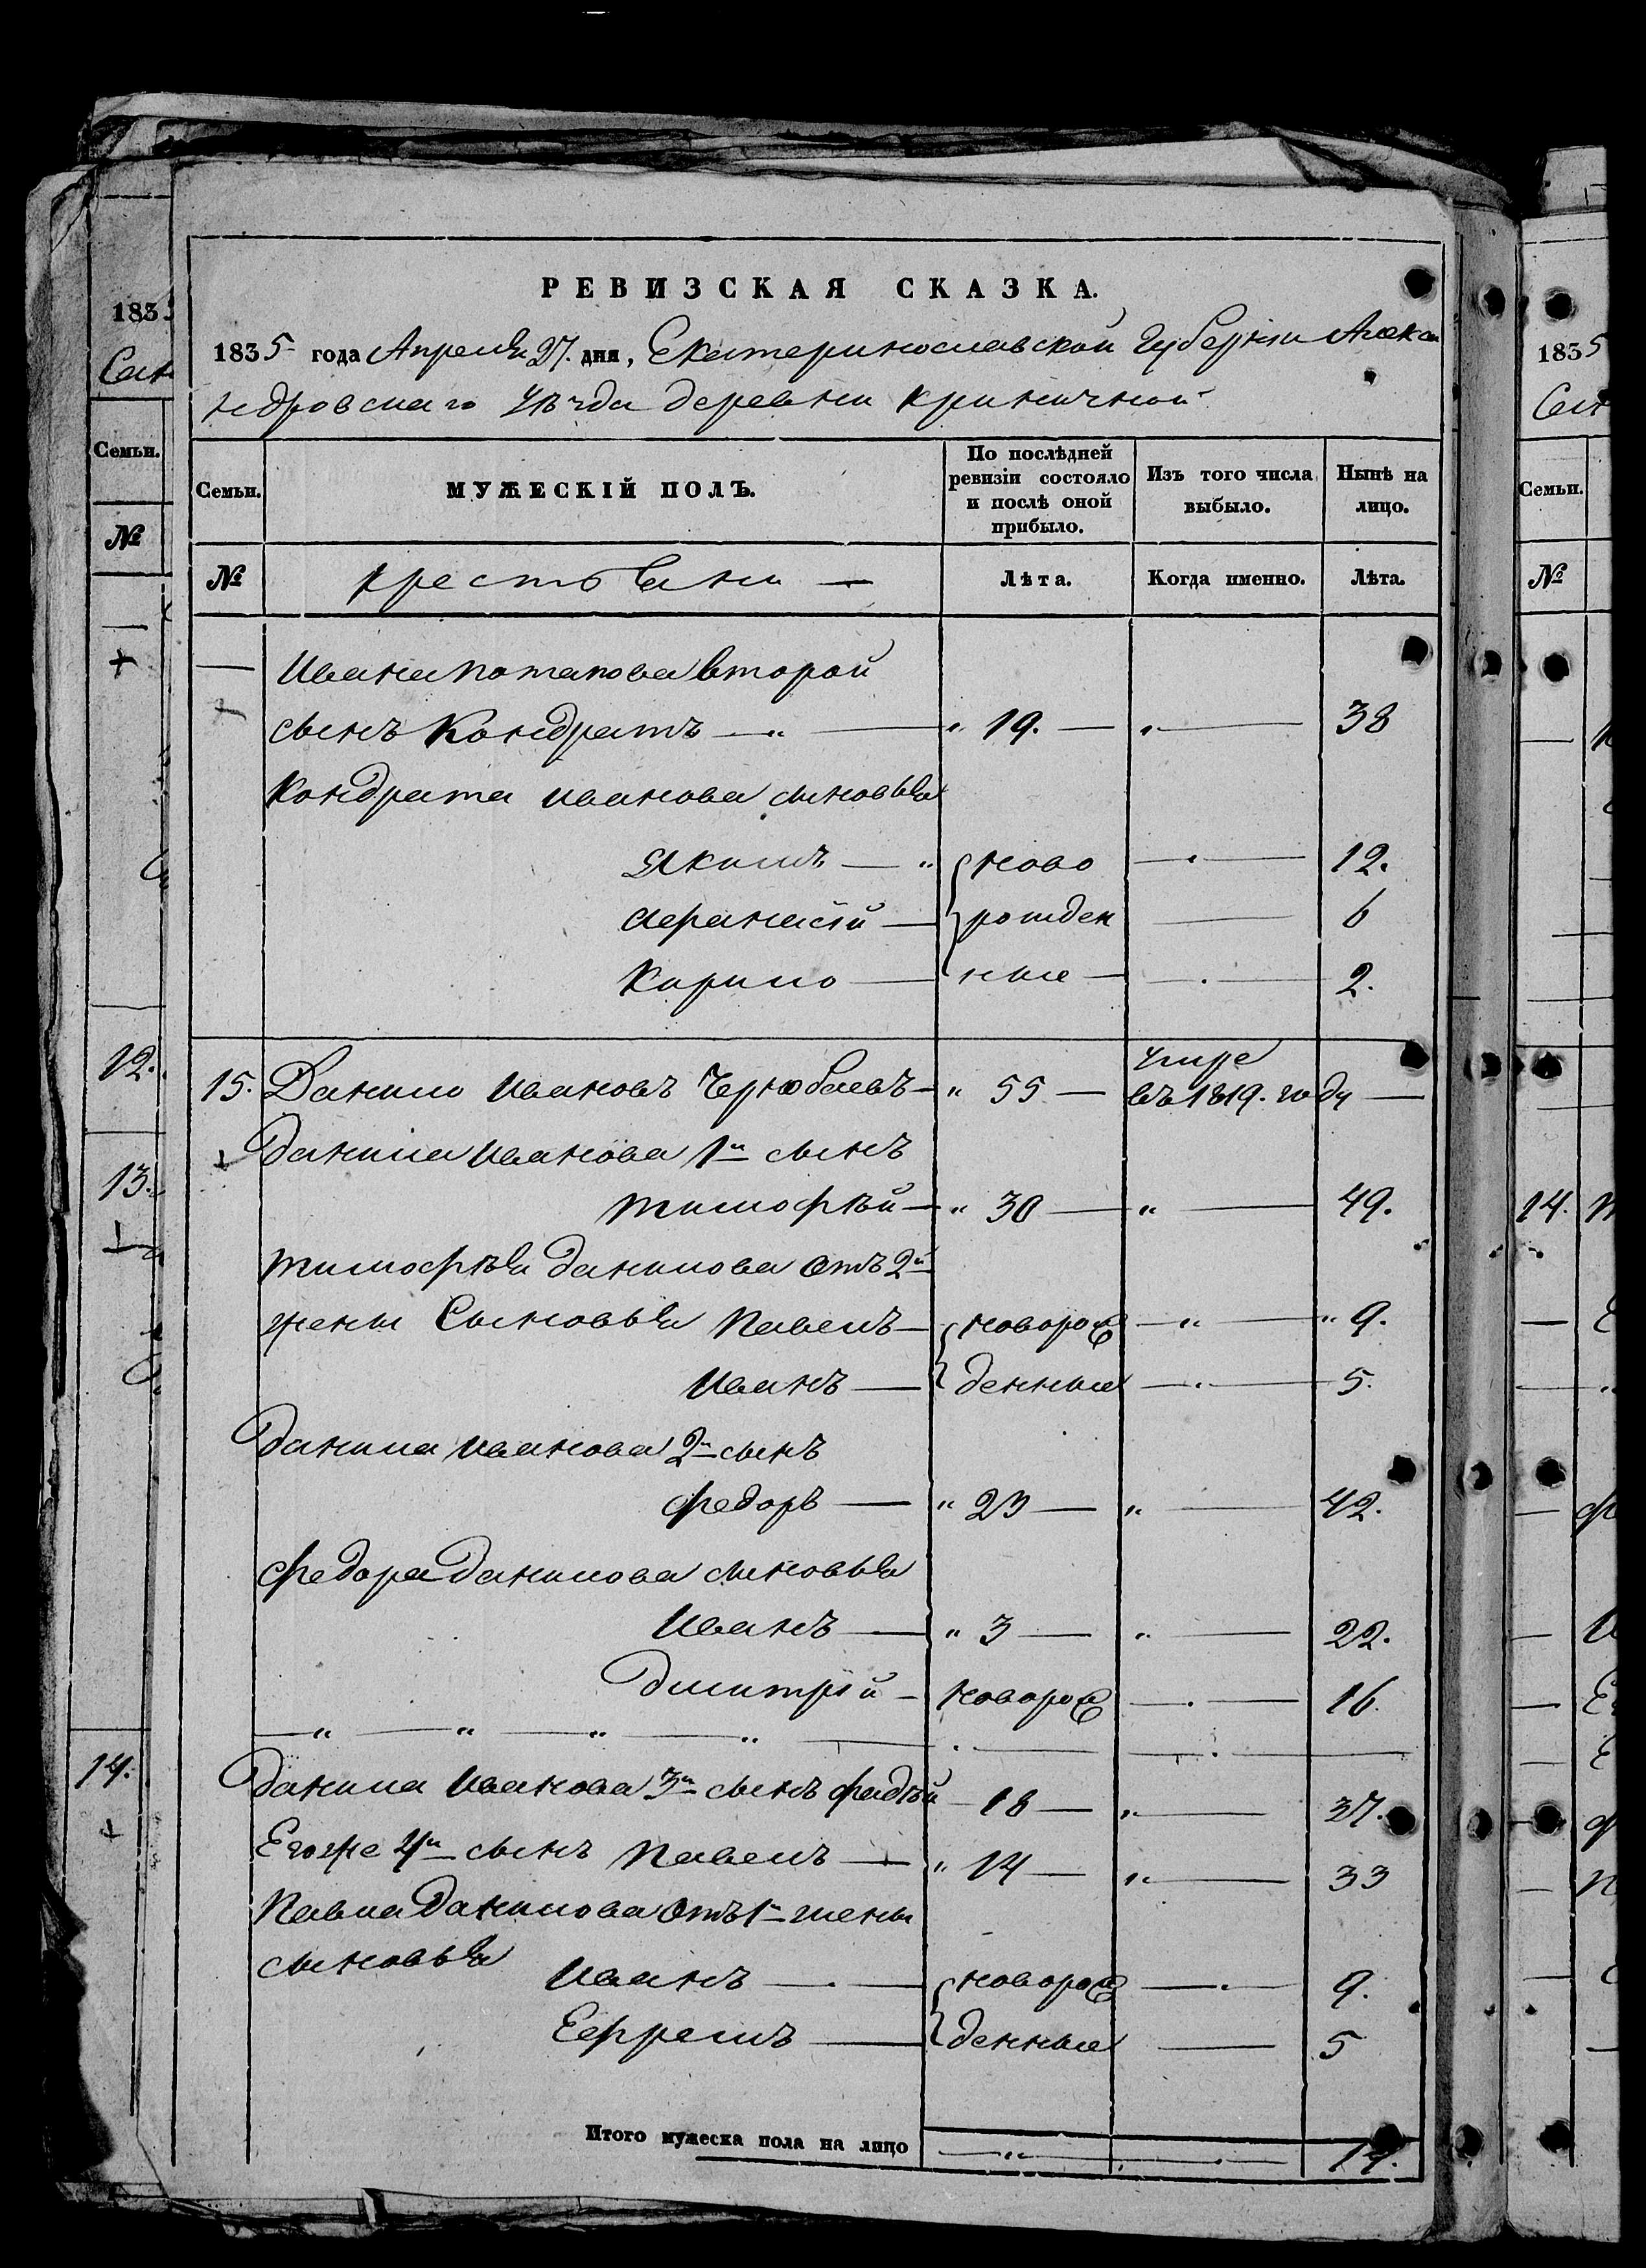 РЕВИЗСКАЯ СКАЗКА.
1835 года Апреля 27. дня, Екатеринославской Губернiи Алекса
ндровскаго Уѣзда деревни криничной
Семьи. МУЖЕСКIЙ ПОЛЪ. По послѣдней ревизiи состояло и послѣ оной прибыло. Изъ того числа выбыло. Нынѣ на лицо.
№ крестьяни — Лѣта. Когда именно. Лѣта.
— Ивана потапова второй
сынъ Кондратъ — " 19. — " — 38
Кондрата иванова сыновья
Якимъ — " ново — 12.
афанасiй — рожден — 6
Кирило — ные — 2.
15. Данило ивановъ Чернобаевъ — " 55 — умре въ 1819. году —
Данила иванова 1й сынъ
тимофѣй — " 30 — " — 49.
тимофѣя данилова отъ 2й
жены Сыновья павелъ — новорож — " — " 9.
иванъ — денные — 5.
Данила иванова 2й сынъ
федоръ — " 23 — " — 42.
федора данилова сыновья
иванъ — " 3 — " — 22.
Дмитрiй — новорож — 16.
— " — " — " — " —
Данила иванова 3й сынъ фадѣй — 18 — " — 37.
Егоже 4й сынъ павелъ — " 14 — " — 33
павла Данилова отъ 1й жены
сыновья иванъ — новорож — 9.
Ефремъ — денные — 5
Итого мужеска пола на лицо — " — 14.
1835
Семьи.
№
12.
13.
14.
1835
Семьи.
№
14.